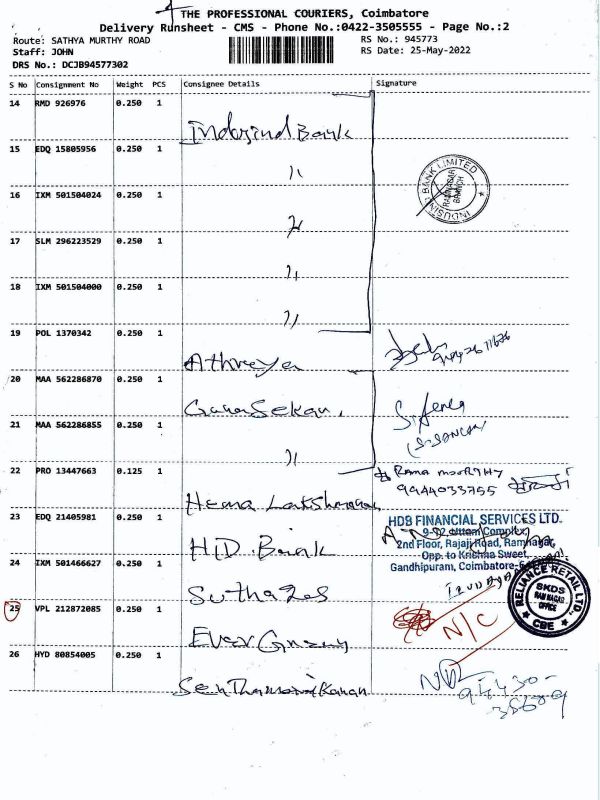 THE PROFESSIONAL COURIERS, Coimbatore
Delivery Runsheet - CMS - Phone No.:0422-3505555 - Page No.:2
Route: SATHYA MURTHY ROAD
Staff: JOHN
DRS No.: DCJB94577302
RS No.: 945773
RS Date: 25-May-2022
S No Consignment No Weight PCS Consignee Details Signature
14 RMD 926976 0.250 1
Indusind Bank
15 EDQ 15805956 0.250 1
〃
INDUSIND BANK LIMITED
RAMNAGAR
BRANCH
16 IXM 501504024 0.250 1
〃
17 SLM 296223529 0.250 1
〃
18 IXM 501504000 0.250 1
〃
19 POL 1370342 0.250 1
Athreya
20 MAA 562286870 0.250 1
GunaSekar.
21 MAA 562286855 0.250 1
〃
22 PRO 13447663 0.125 1
RAMA MOORTHY
9944033755
Hema Lakshmanan
23 EDQ 21405981 0.250 1
HDB FINANCIAL SERVICES LTD.
2nd Floor, Rajaji Road, Ramnagar,
Opp. to Krishna Sweet,
Gandhipuram, Coimbatore-
24 IXM 501466627 0.250 1
RELIANCE RETAIL LTD.,
SKDS
RAM NAGAR
OFFICE
CBE
25 VPL 212872085 0.250 1
N/C
26 HYD 80854005 0.250 1